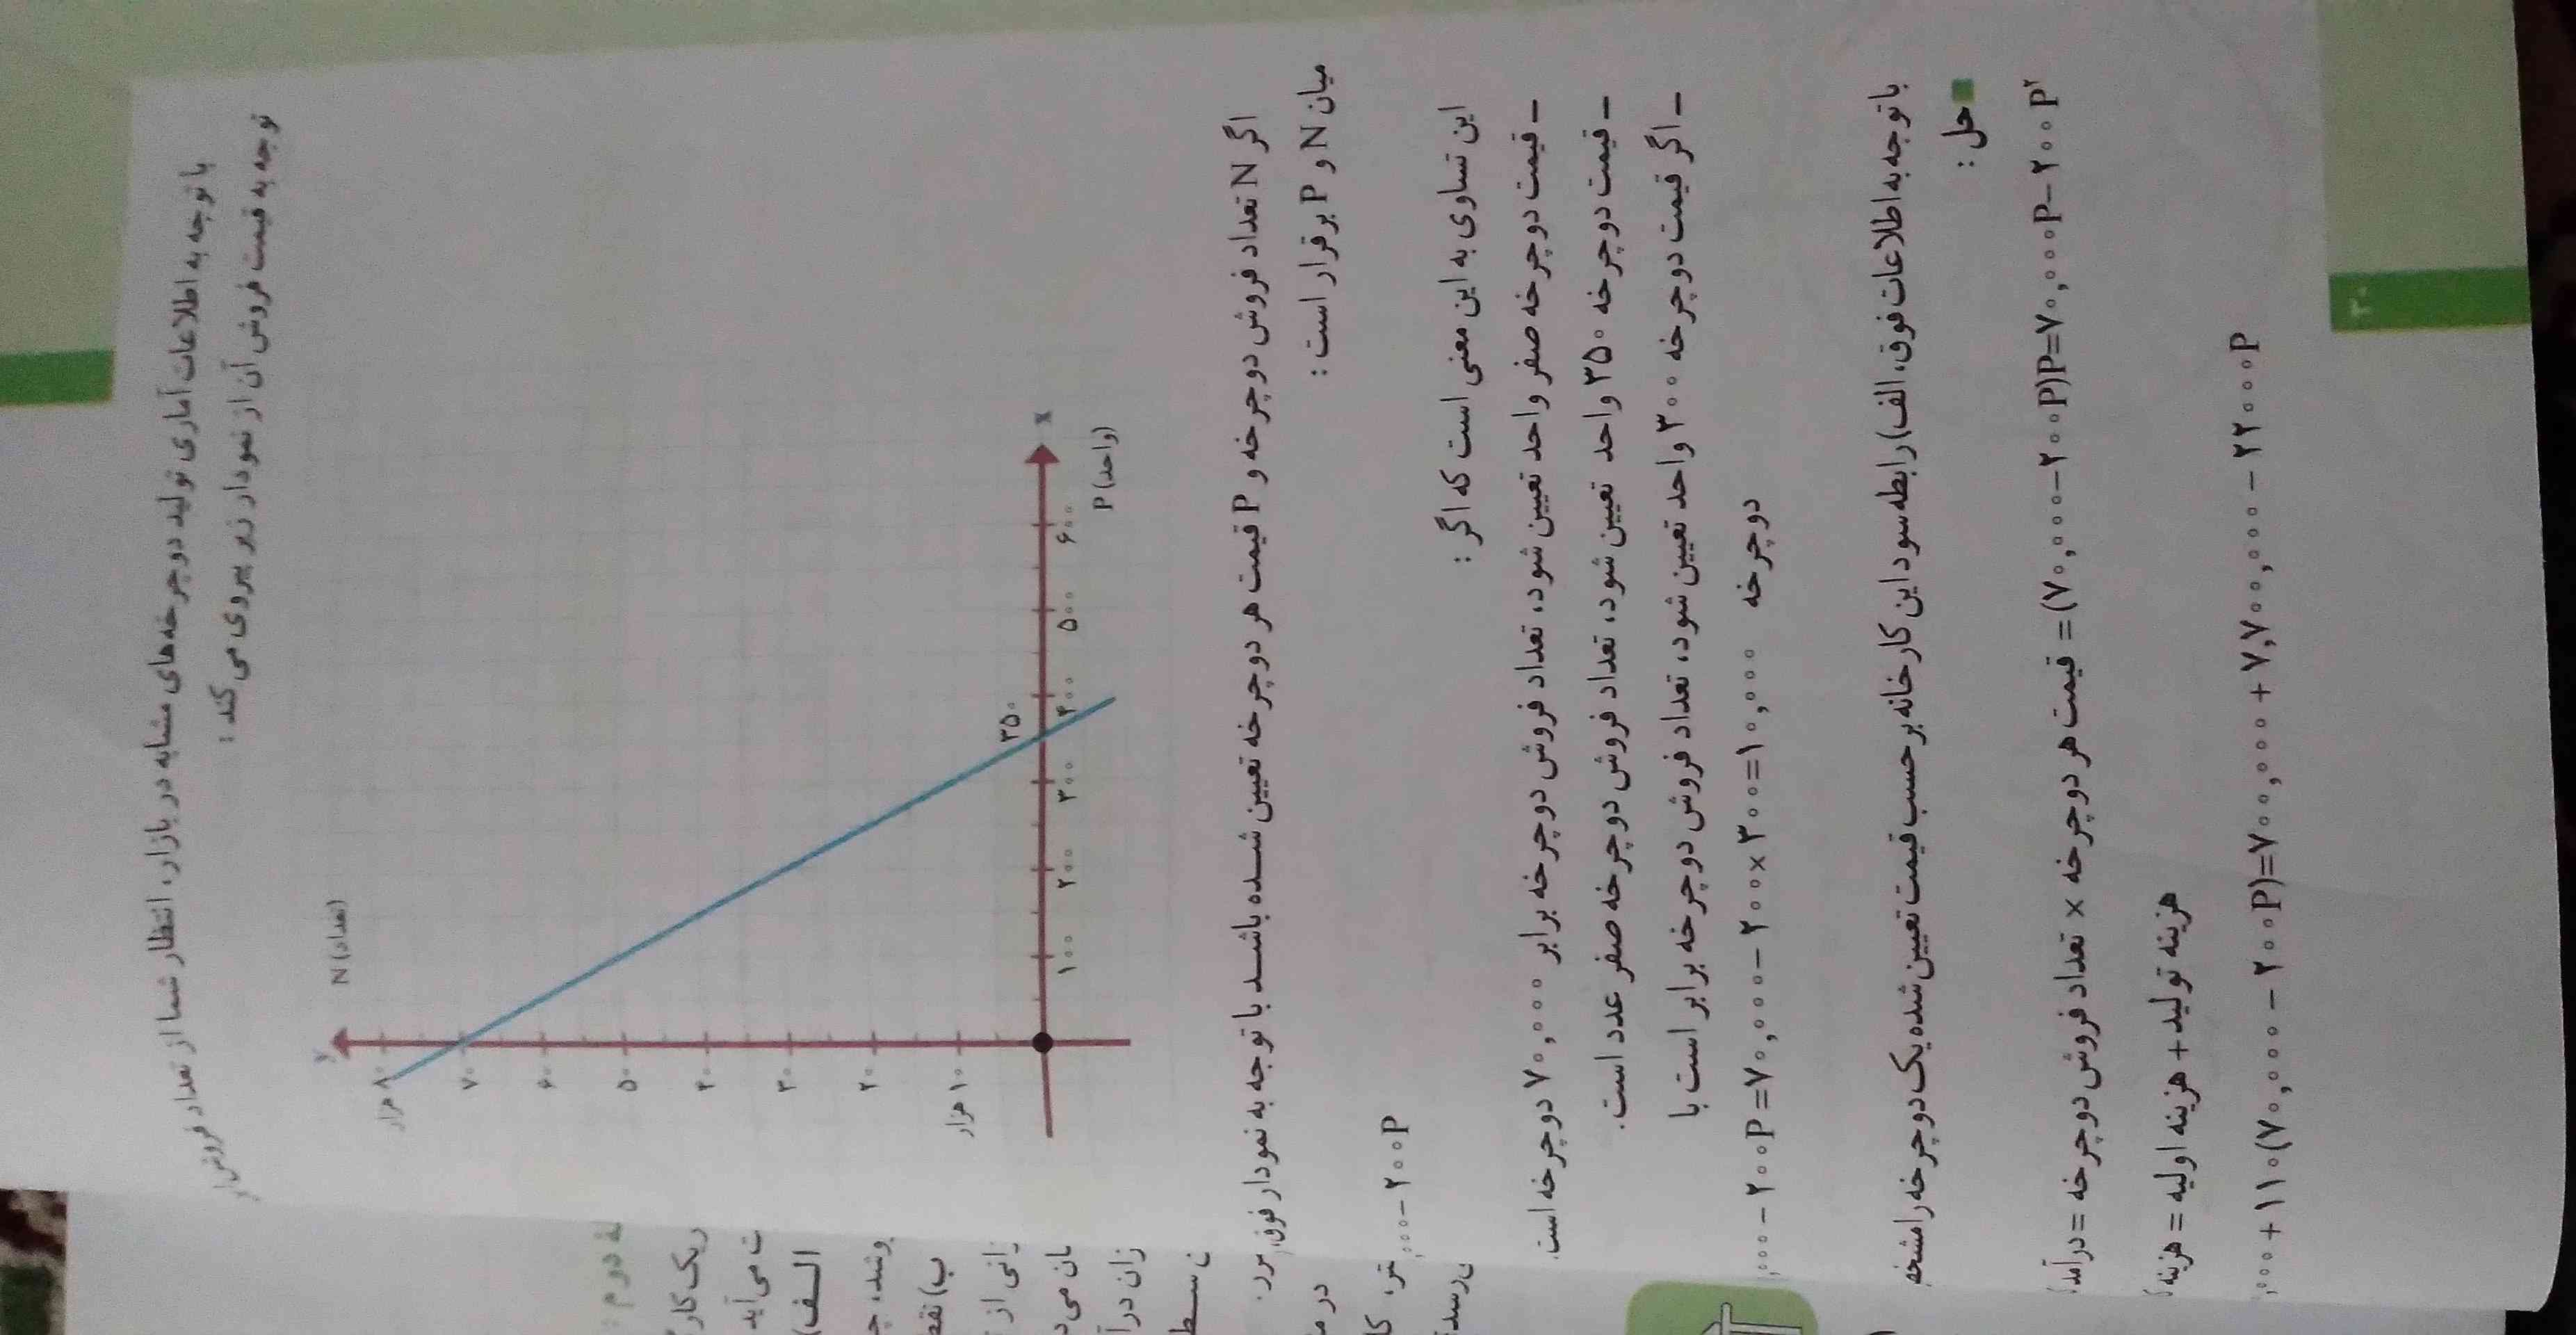 با توجه به اطلاعات آماری تولید دوچرخه‌های مشابه در بازار، انتظار شما از تعداد فروش
توجه به قیمت فروش آن از نمودار زیر پیروی می‌کند:
y
N (تعداد)
۸۰ هزار
۷۰
۶۰
۵۰
۴۰
۳۰
۲۰
۱۰ هزار
۳۵۰
x
۱۰۰
۲۰۰
۳۰۰
۴۰۰
۵۰۰
۶۰۰
P (واحد)
اگر N تعداد فروش دوچرخه و P قیمت هر دوچرخه تعیین شده باشد با توجه به نمودار فوق،
میان N و P برقرار است:
,۰۰۰-۲۰۰P
این تساوی به این معنی است که اگر:
ـ قیمت دوچرخه صفر واحد تعیین شود، تعداد فروش دوچرخه برابر ۷۰,۰۰۰ دوچرخه است.
ـ قیمت دوچرخه ۳۵۰ واحد تعیین شود، تعداد فروش دوچرخه صفر عدد است.
ـ اگر قیمت دوچرخه ۳۰۰ واحد تعیین شود، تعداد فروش دوچرخه برابر است با
,۰۰۰-۲۰۰P=۷۰,۰۰۰-۲۰۰×۳۰۰=۱۰,۰۰۰ دوچرخه
با توجه به اطلاعات فوق، الف) رابطه سود این کارخانه بر حسب قیمت تعیین شده یک دوچرخه را
حل:
(۷۰,۰۰۰-۲۰۰P)P=۷۰,۰۰۰P-۲۰۰P² = قیمت هر دوچرخه × تعداد فروش دوچرخه = درآمد
هزینه تولید + هزینه اولیه = هزینه
,۰۰۰+۱۱۰(۷۰,۰۰۰-۲۰۰P)=۷۰۰,۰۰۰+۷,۷۰۰,۰۰۰-۲۲۰۰۰P
۳۰
دوم:
یک
ت می‌آید
الف)
وشد،
ب)
زانی از
مان می‌د
در